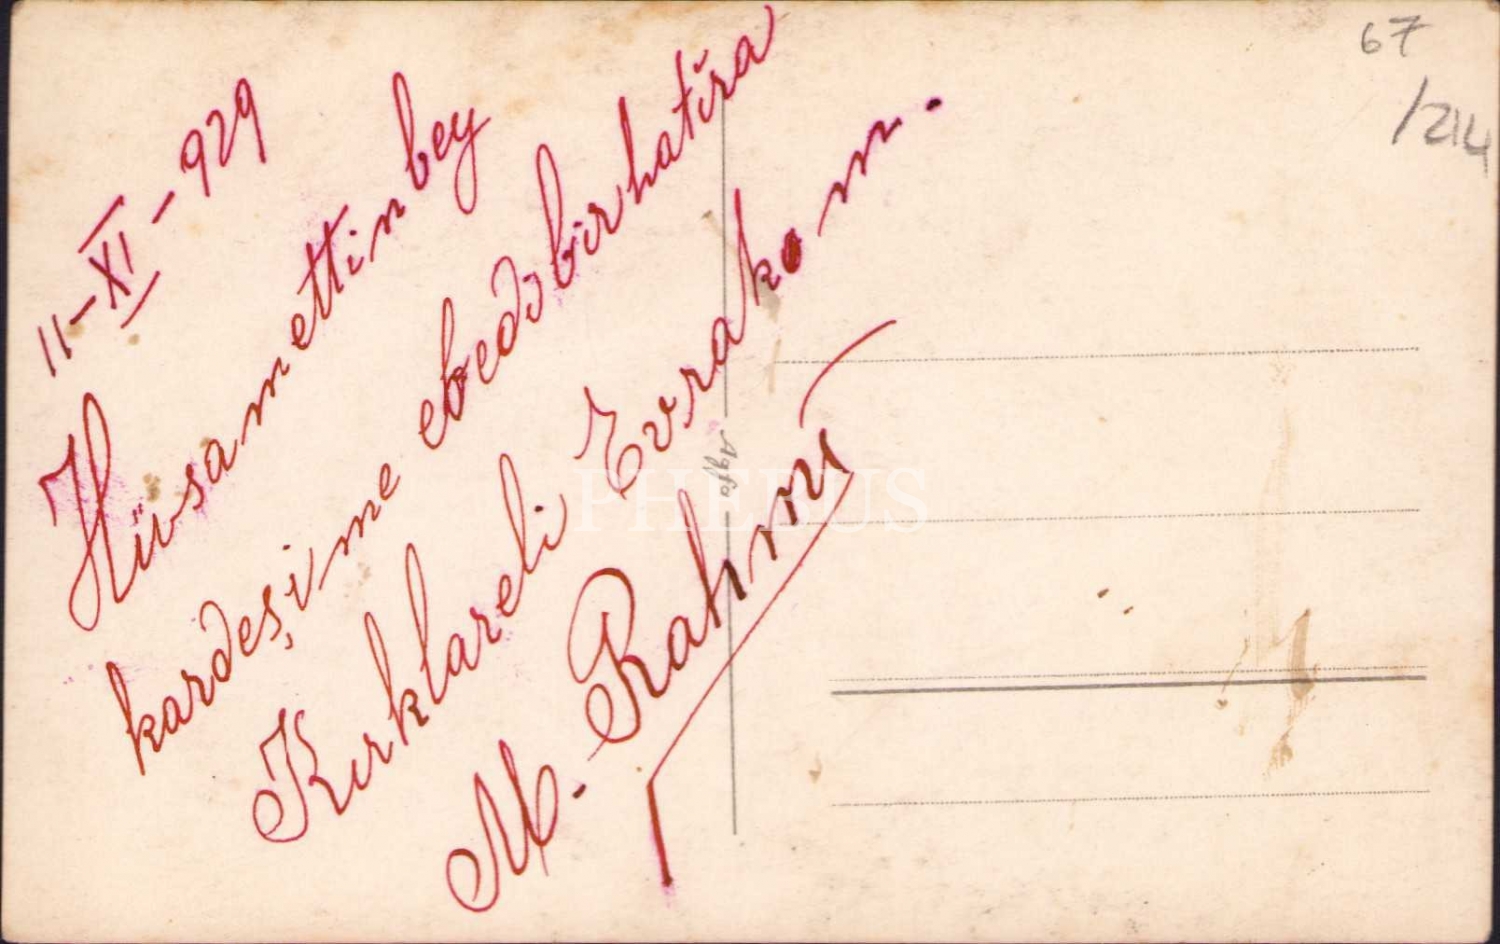 11-XI-929
Hüsamettin bey
kardeşime ebedi bir hatıra
Kırklareli Evrak m.
M. Rahmi
67
/214
Agfa
PHEBUS